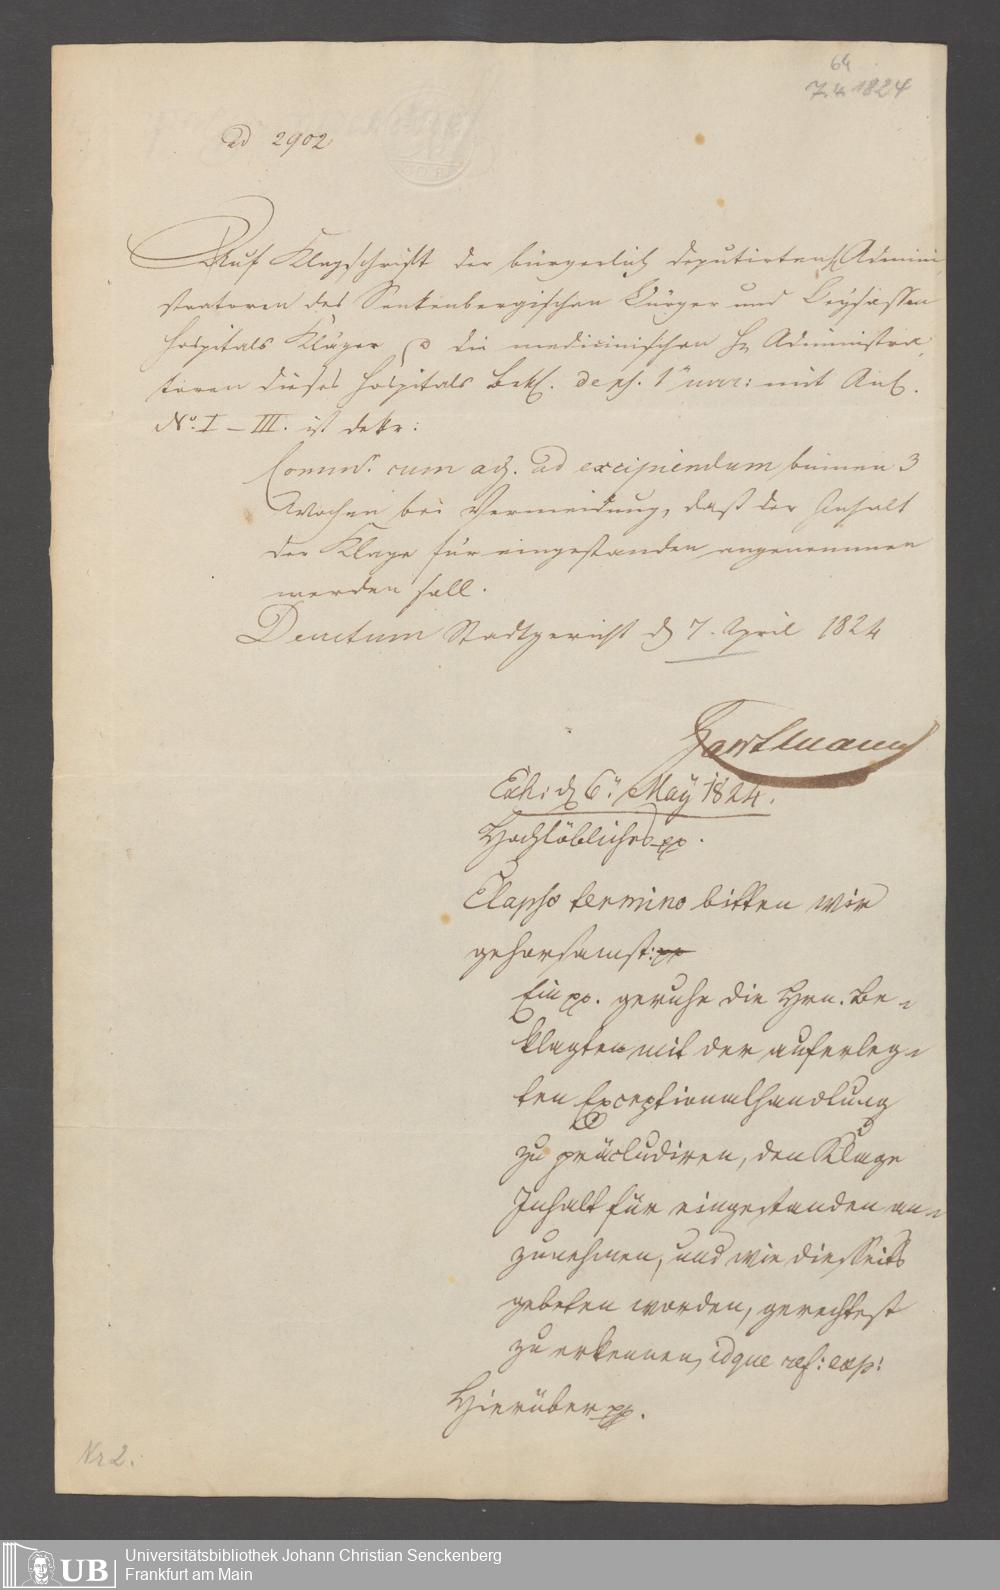 64
7.4.1824
ad 2902
Auf Klagschrift der bürgerlich deputirten Admini
stratoren des Senkenbergischen Bürger und Beysassen
hospitals Kläger die medicinischen H Administra
toren dieses Hospitals Bekl. de ps. 1 mit Anl.
No. I – III. ist dekr:
Comm. cum adj. ad excipiendum binnen 3
Wochen bei Vermeidung, daß der Inhalt
der Klage für eingestanden angenommen
werden soll.
Decretum Stadtgericht d 7. April 1824
Hartmann
Exh: d 6n May 1824.
Hochlöbliches pp.
Elapso termino bitten wir
gehorsamst:
Ein pp. geruhe die Hrn. Be-
klagten mit der auferleg-
ten Exceptionalhandlung
zu präcludiren, den Klage
Inhalt für eingestanden an-
zunehmen, und wie diesseits
gebeten worden, gerechtest
zu erkennen, idque ref: exp:
Hierüber pp.
Nr 2.
UB
Universitätsbibliothek Johann Christian Senckenberg
Frankfurt am Main